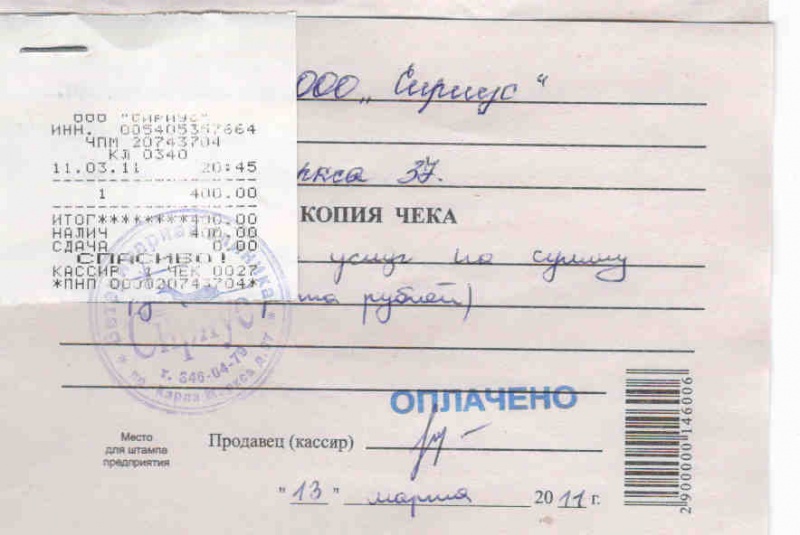 ООО „Сириус"
ООО "СИРИУС"
ИНН. 005405357664
ЧПМ 20743704
КЛ 0340
11.03.11 20:45
1 400.00
ИТОГ********400.00
НАЛИЧ 400.00
СДАЧА 0.00
СПАСИБО!
КАССИР 1 ЧЕК 0027
*ПНП 000020743704*
ркса 37.
КОПИЯ ЧЕКА
услуг на сумму
та рублей)
Сириус
т. 346-04-79
ОПЛАЧЕНО
Место
для штампа
предприятия
Продавец (кассир)
"13" марта 2011 г.
2900000146006